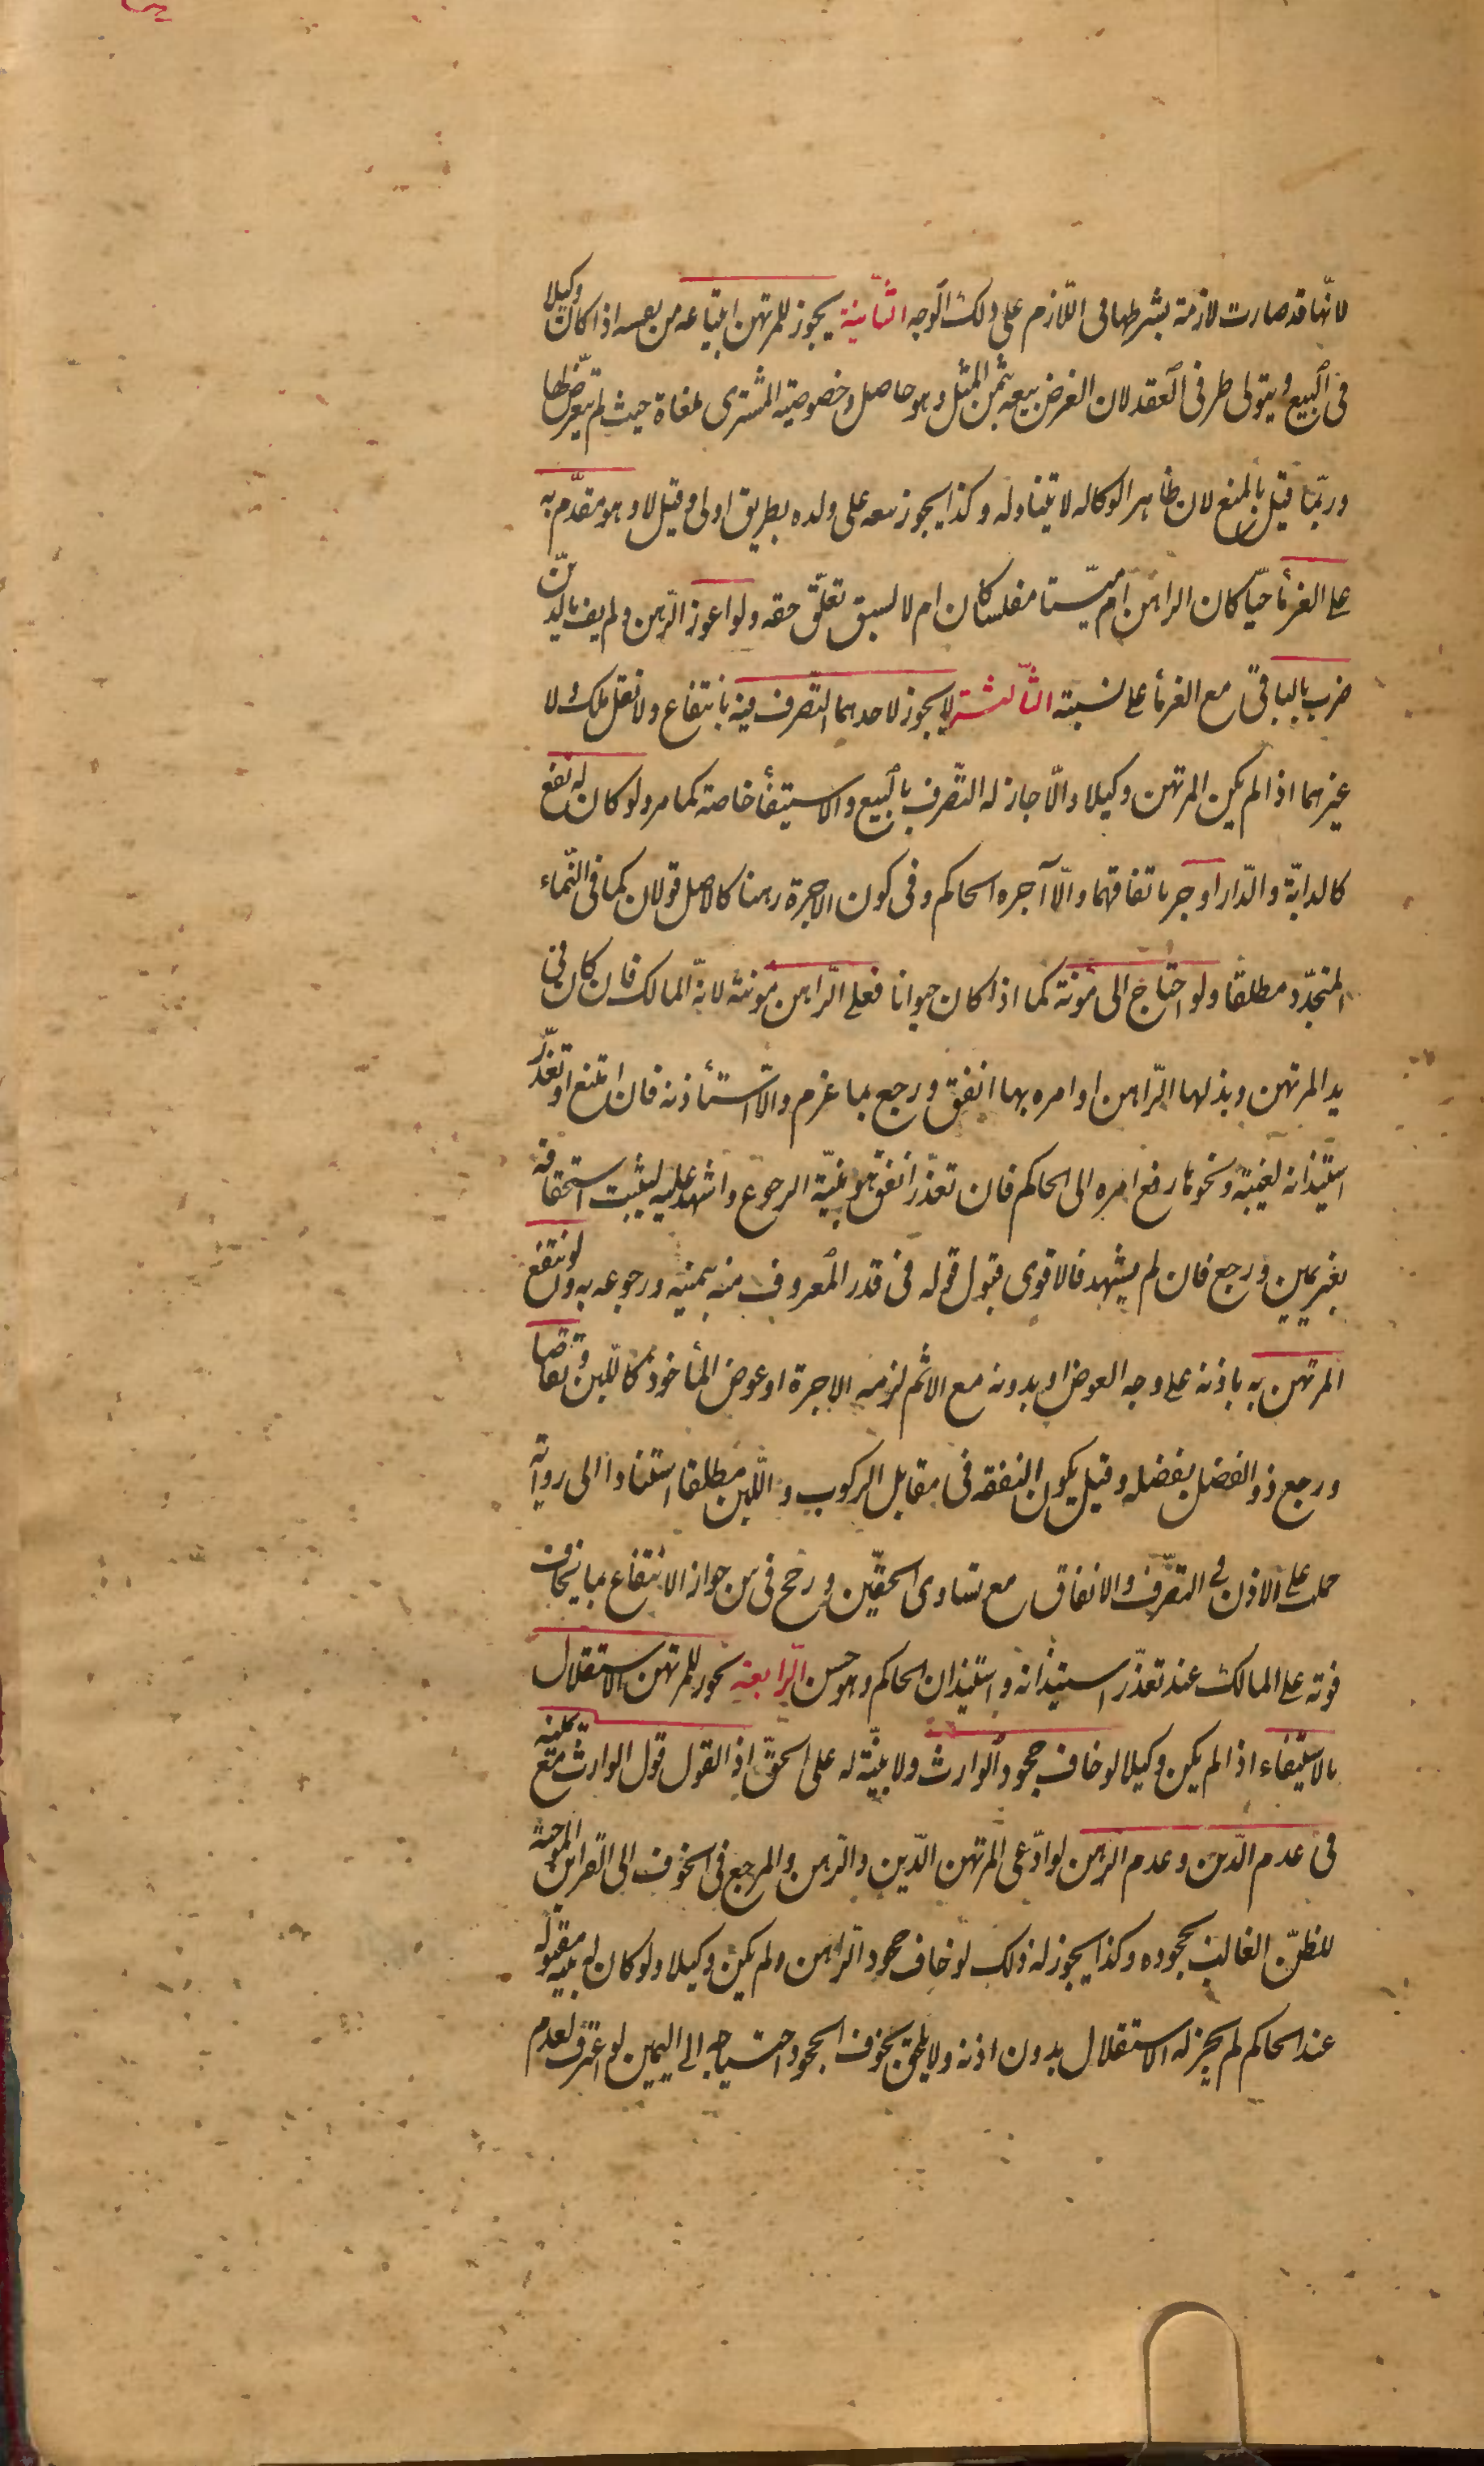 لانّها قد صارت لازمة بشرطها فى اللّازم على ذلك الوجه الثّانية يجوز للمرتهن ابتياعه من نفسه اذا كان وكيلا
فى البيع ويتولى طرفى العقد لان الغرض بيعه بثمن المثل وهو حاصل وخصوصية المشترى ملغاة حيث لم يتعرّض لها
وربّما قيل بالمنع لان ظاهر الوكاله لا يتناوله وكذا يجوز بيعه على ولده بطريق اولى وقيل لا وهو مقدّم به
على الغرماء حيّا كان الراهن ام ميّتا مفلسا كان ام لا لسبق تعلّق حقه ولو اعوز الرّهن ولم يف بالدّين
ضرب بالباقى مع الغرماء على نسبته الثّالثة لا يجوز لاحدهما التّصرف فيه بانتفاع ولا نقل ملك ولا
غيرهما اذا لم يكن المرتهن وكيلا والّا جاز له التّصرف بالبيع والاستيفاء خاصة كما مر ولو كان له نفع
كالدابّة والدّار اوجر باتفاقهما والّا آجره الحاكم وفى كون الاجرة رهنا كالاصل قولان كما فى النّماء
المتجدّد مطلقا ولو احتاج الى مؤنة كما اذا كان حيوانا فعلى الرّاهن مونته لانّه المالك فان كان فى
يد المرتهن وبذلها الرّاهن او امره بها انفق ورجع بما غرم والّا استأذنه فان امتنع او تعذّر
استيذانه لغيبة ونحوها رفع امره الى الحاكم فان تعذّر انفق هو بنيّة الرجوع واشهد عليه ليثبت استحقاقه
بغير يمين ورجع فان لم يشهد فالاقوى قبول قوله فى قدر المعروف منه بيمينه ورجوعه به ولو انتفع
المرتهن به باذنه على وجه العوض او بدونه مع الاثم لزمه الاجرة او عوض المأخوذ كاللّبن وتقاصا
ورجع ذو الفضل بفضله وقيل يكون النفقه فى مقابل الركوب واللّبن مطلقا استنادا الى رواية
حملت على الاذن فى التصّرف والانفاق مع تساوى الحقيّن ورجح فى س جواز الانتفاع بما يخاف
فوته على المالك عند تعذّر استيذانه واستيذان الحاكم وهو حسن الرّابعة يجوز للمرتهن الاستقلال
بالاستيفاء اذا لم يكن وكيلا لو خاف جحود الوارث ولا بيّنة له على الحقّ اذ القول قول الوارث مع يمينه
فى عدم الدّين وعدم الرّهن لو ادّعى المرتهن الدّين والرّهن والمرجع فى الخوف الى القراين الموجبة
للظنّ الغالب بجحوده وكذا يجوز له ذلك لو خاف جحود الرّاهن ولم يكن وكيلا ولو كان له بيّنة مقبولة
عند الحاكم لم يجز له الاستقلال بدون اذنه ولا يلحق بخوف الجحود احتياجه الى اليمين لو اعترف لعدم